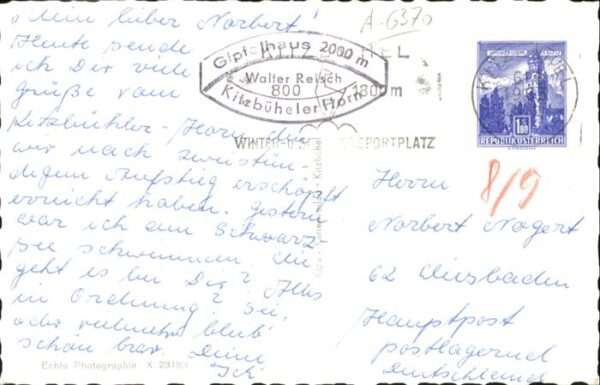 „Mein lieber Norbert!
Heute sende
ich Dir viele
Grüße vom
Kitzbühler-Horn, das
wir nach zweistün-
digem Aufstieg erschöpft
erreicht haben. Gestern
war ich am Schwarz-
see schwimmen. Wie
geht es bei Dir? Alles
in Ordnung? Sei,
oder vielmehr bleib'
schön brav. Deine
Ich
Echte Photographie K
A-6370
Gipfelhaus 2000 m
Walter Reisch
Kitzbüheler Horn
800
1800 m
WINTER-U. SPORTPLATZ
1.50
REPUBLIK ÖSTERREICH
8/9
Herrn
Norbert Nogert
62 Wiesbaden
Hauptpost
postlagernd
Deutschland